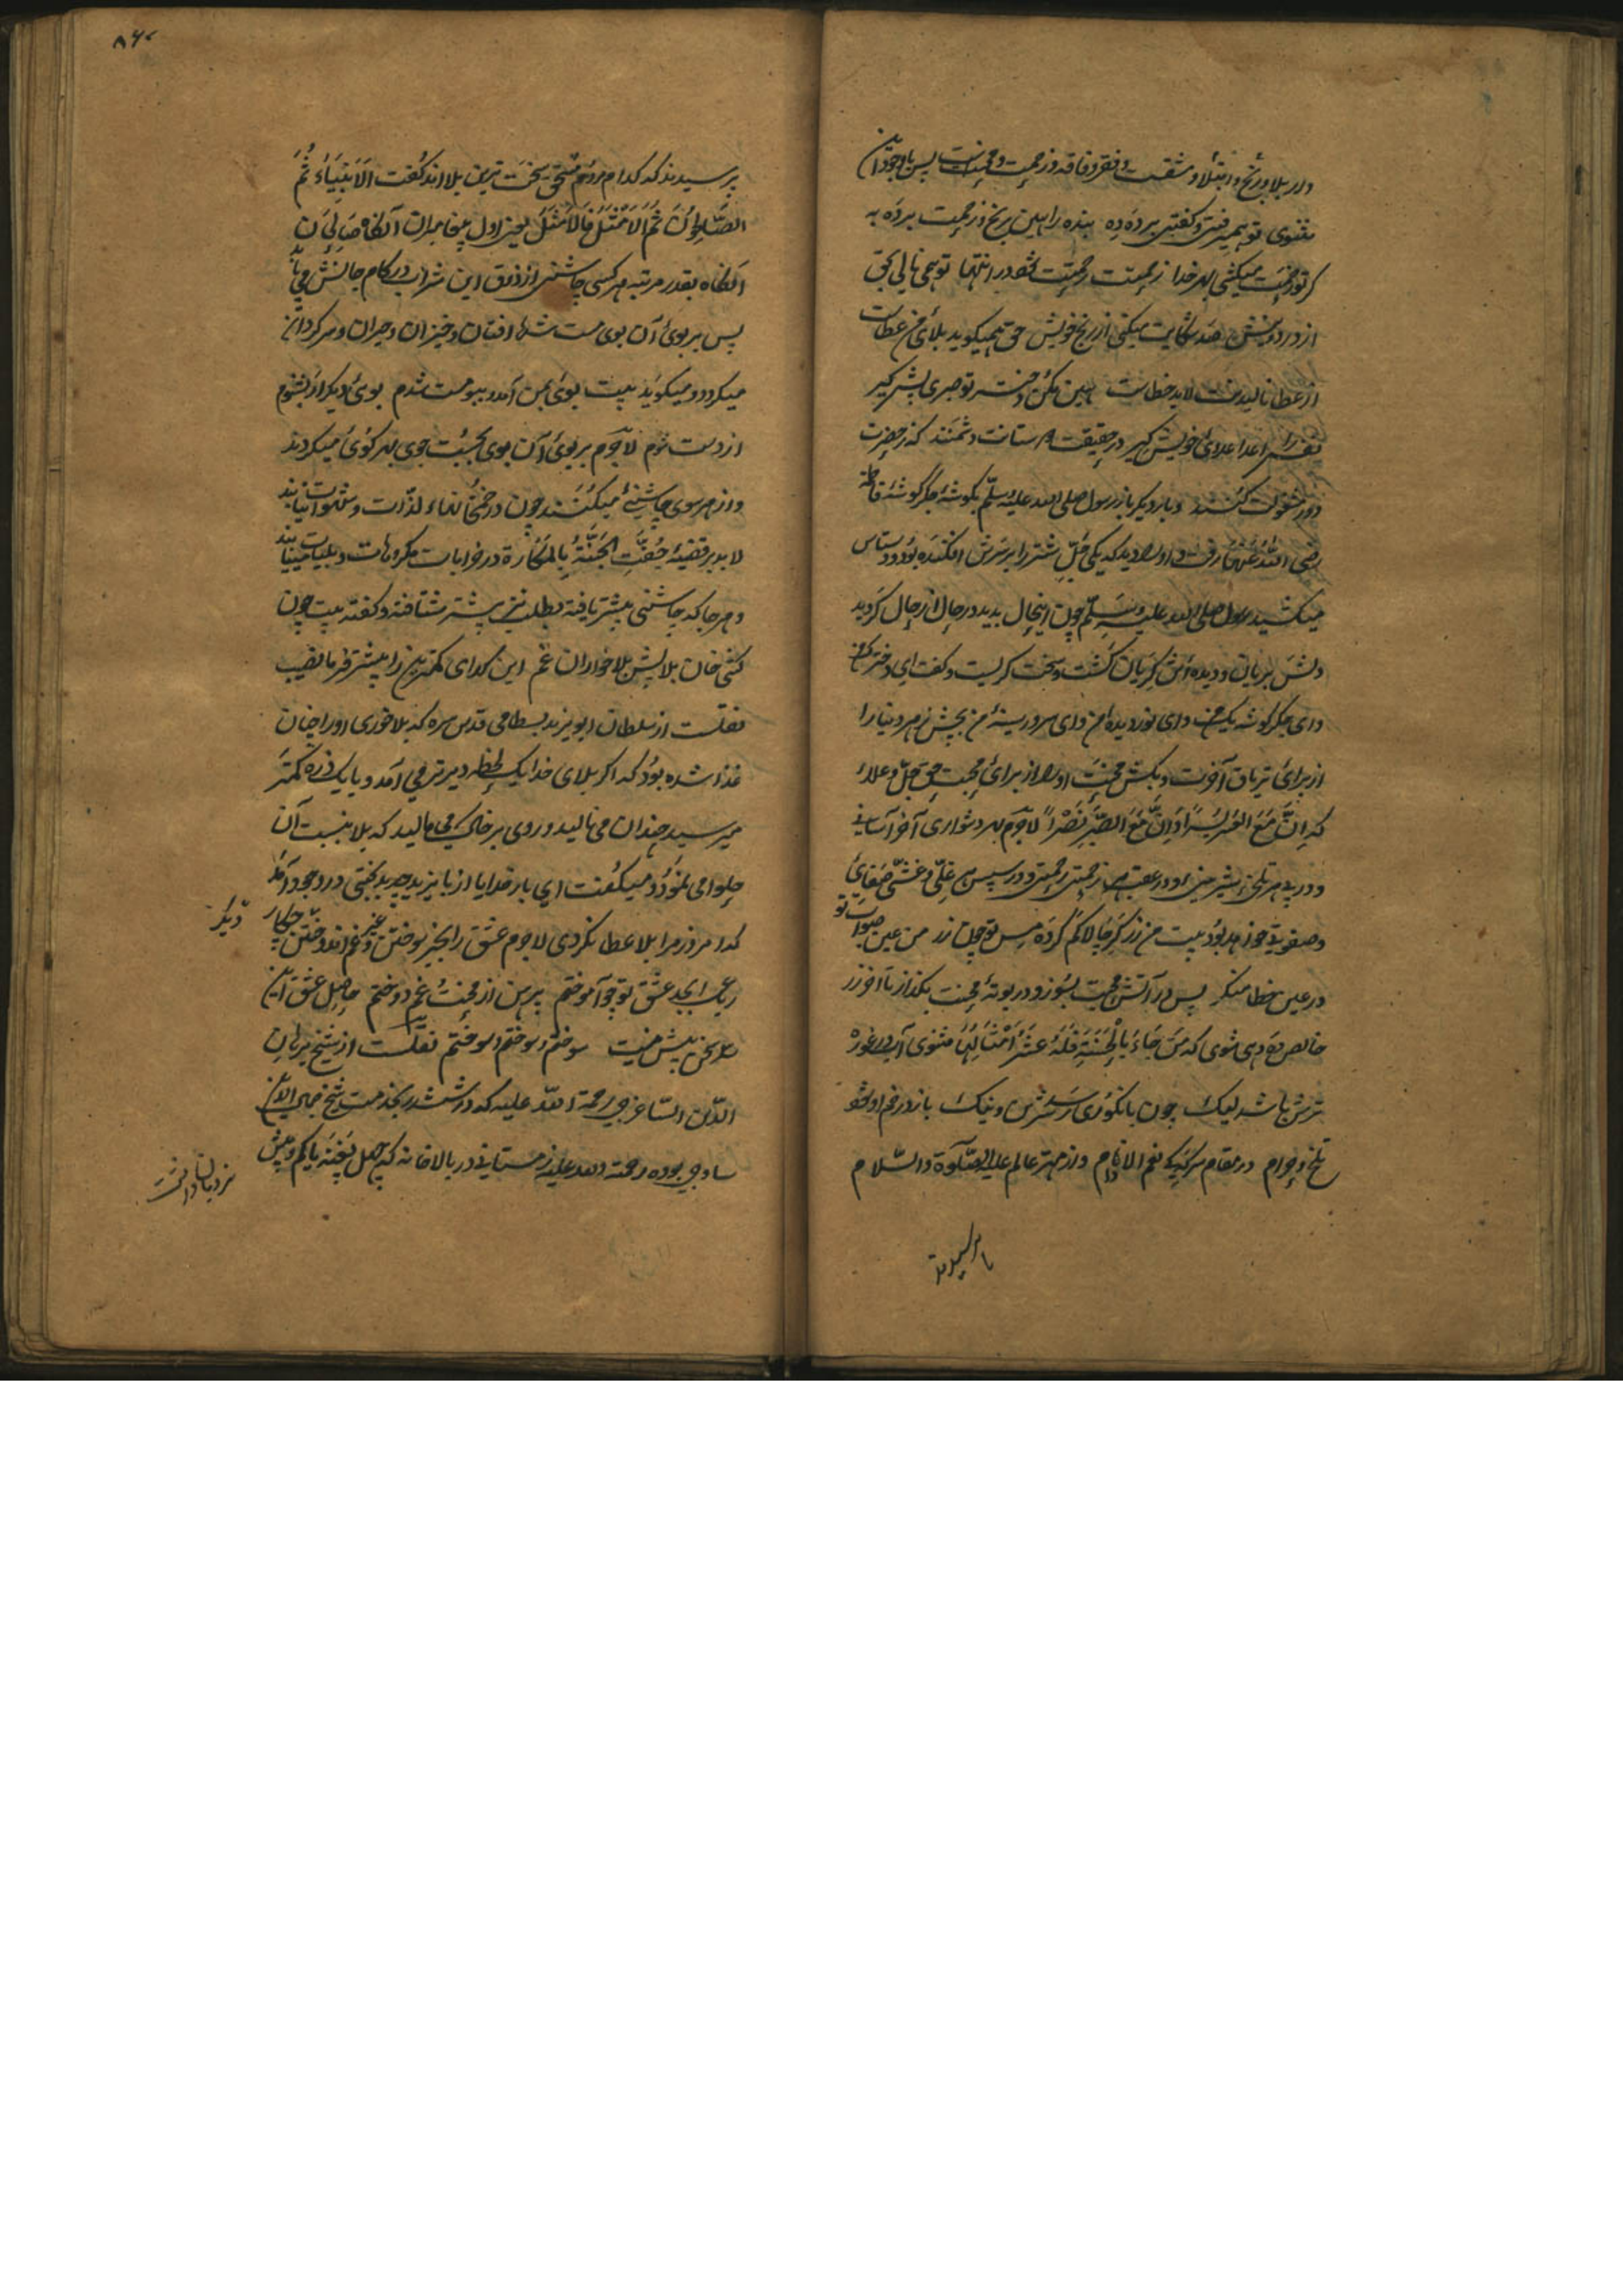 و در بلا و رنج و ابتلا و مشقت و فقر و فاقه و زحمت و محنت پس با وجود این
مثنوی تو بمیرفتی و کفتی پرده ده بنده را بین رنج و زحمت پرده به
کر تو زحمت میکشی بهر خدا زحمتت رحمت شود در انتها توهمی نالی بحق
از درد و نیش صد شکایت میکنی از رنج خویش حق همیکوید بلای من عطاست
از عطا نالیدنت لابد خطاست هین مکن و حسر تو صبری پیش کیر
نفس را اعدا عدای خویش کیر در حقیقت دوستانت دشمنند که ز حضرت
دور و مشغولت کنند و بار دیگر باز رسول صلی الله علیه وسلم بکوشه جگر گوشه فاطمه
رضی الله عنها رفت و او را دید که یکی جل شتر را بر سرش افکنده بود و دستاس
میکشید رسول صلی الله علیه وسلم چون اینحال بدید در حال از حال کردید
دلش بریان و دیده اش کریان کشت و سخت کریست و کفت ای دختر من
و ای جکر کوشه یک من و ای نور دیده من و ای سرور سینه من بچش زهر دنیا را
از برای تریاق آخرت و بکش محنت او را از برای محبت حق جل و علا
که ان مع العسر یسرا و ان مع الصبر نصرا لاجرم بهر دشواری آخر آسانی
و در پی هر تلخی شیرینی و در عقب هر زحمتی رحمتی و در سپس هر غلی و غشی صفای
و صفوتی خواهد بود بیت من زرکر چالاکم کرده مس تو چون زر من عین صواب تو
در عین خطا منکر پس در آتش محبت بسوز و در بوته محنت بکداز تا آخر زر
خالص ده دهی شوی که من جاء بالحسنة فله عشر امثالها مثنوی آب در غوره
ترش باشد لیک چون بانکوری رسد شیرین و نیک باز در خم او شود
تلخ و حرام در مقام سرککی نعم الادام و از مهتر عالم علیه الصلوة والسلام
پرسیدند
۸۶۰
پرسیدند که کدام مردم مستحق سخت ترین بلا اند کفت الانبیاء ثم
الصالحون ثم الامثل فالامثل یعنی اول پیغامبران آنکاه صالحان
آنکاه بقدر مرتبه هر کسی چاشنی از ذوق این شراب در کام جانش می یابد
پس بر بوی آن بوی مست شده افتان و خیزان و حیران و سرکردان
میکردد و میکوید بیت بوی بمن آمد و ببو مست شدم بوی دیکر ار بشنوم
از دست شوم لاجرم بر بوی آن بوی بجست جوی بهر کوی میکردند
و از هر سوی چاشنی میکنند چون در ختم لذات و شهوات نیابند
لابد بر قضیه حفت الجنة بالمکارة در خرابات مکروهات و بلیات میبابند
و هر جا که چاشنی بیشتر یافته بطلب نیز بیشتر شتافته و کفته بیت چون
کنی خان بلا پیش بلا خواران غم این کدای کمترین را بیشتر فرما نصیب
نقلست از سلطان ابو یزید بسطامی قدس سره که بلا خوری او را چنان
غذا شده بود که اکر بلای خدا یک لحظه دیرتر می آمد و یا یک ذره کمتر
میرسید چندان می نالید و روی بر خاک می مالید که بلا بنسبت آن
حلوا می نمود و میکفت ای بار خدایا از با یزید چه بد بختی در وجود آمد
که امروز مرا بلا عطا نکردی لاجرم عشق را بجز سوختن و غیر غم اندوختن چه کار دیکر
رباعی ابجد عشق تو چو آموختم پیرهن از محنت و غم دوختم حاصل عشق این
سه سخن بیش نیست سوختم و سوختم و سوختم نقلست از شیخ برهان
الدین الساغرجی رحمة الله علیه که در شهر بخدمت شیخ جمال الدین
ساوجی بوده رحمة الله علیه زمستانی در بالاخانه که چهل پخته یا کم و بیش
نردبان داشت